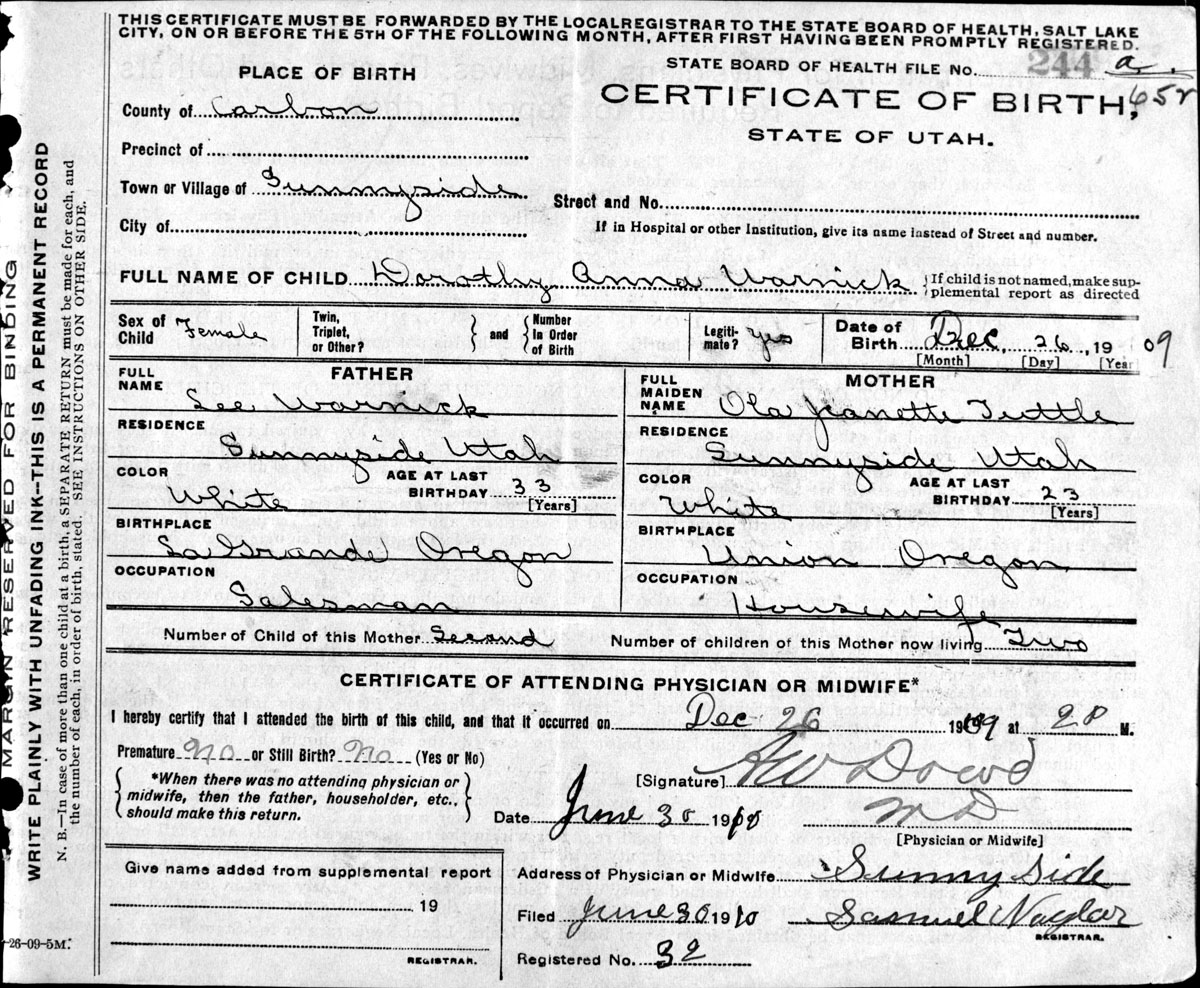 THIS CERTIFICATE MUST BE FORWARDED BY THE LOCAL REGISTRAR TO THE STATE BOARD OF HEALTH, SALT LAKE
CITY, ON OR BEFORE THE 5TH OF THE FOLLOWING MONTH, AFTER FIRST HAVING BEEN PROMPTLY REGISTERED.
STATE BOARD OF HEALTH FILE NO. 244 a.
65r
CERTIFICATE OF BIRTH,
STATE OF UTAH.
PLACE OF BIRTH
County of Carbon
Precinct of
Town or Village of Sunnyside
Street and No.
City of
If in Hospital or other Institution, give its name instead of Street and number.
FULL NAME OF CHILD Dorothy Anna Warnick {If child is not named, make sup-
plemental report as directed
Sex of Child Female
Twin, Triplet, or Other? } and { Number In Order of Birth
Legiti-mate? Yes
Date of Birth Dec, 26, 1909
[Month] [Day] [Year
FATHER
FULL NAME Lee Warnick
RESIDENCE Sunnyside Utah
COLOR White AGE AT LAST BIRTHDAY 33 [Years]
BIRTHPLACE LaGrande Oregon
OCCUPATION Salesman
MOTHER
FULL MAIDEN NAME Ola Jeanette Tuttle
RESIDENCE Sunnyside Utah
COLOR White AGE AT LAST BIRTHDAY 23 [Years]
BIRTHPLACE Union Oregon
OCCUPATION Housewife
Number of Child of this Mother Second Number of children of this Mother now living Two
CERTIFICATE OF ATTENDING PHYSICIAN OR MIDWIFE*
I hereby certify that I attended the birth of this child, and that it occurred on Dec 26 1909 at M.
Premature No or Still Birth? No (Yes or No)
*When there was no attending physician or
midwife, then the father, householder, etc.,
should make this return.
[Signature] AW Dowd
M D
Date June 30 1910
[Physician or Midwife]
Give name added from supplemental report
19
REGISTRAR.
Address of Physician or Midwife Sunny Side
Filed June 30 1910 Samuel Naylor
REGISTRAR.
Registered No. 32
-26-09-5M.
MARGIN RESERVED FOR BINDING
WRITE PLAINLY WITH UNFADING INK—THIS IS A PERMANENT RECORD
N. B.—In case of more than one child at a birth, a SEPARATE RETURN must be made for each, and
the number of each, in order of birth, stated. SEE INSTRUCTIONS ON OTHER SIDE.